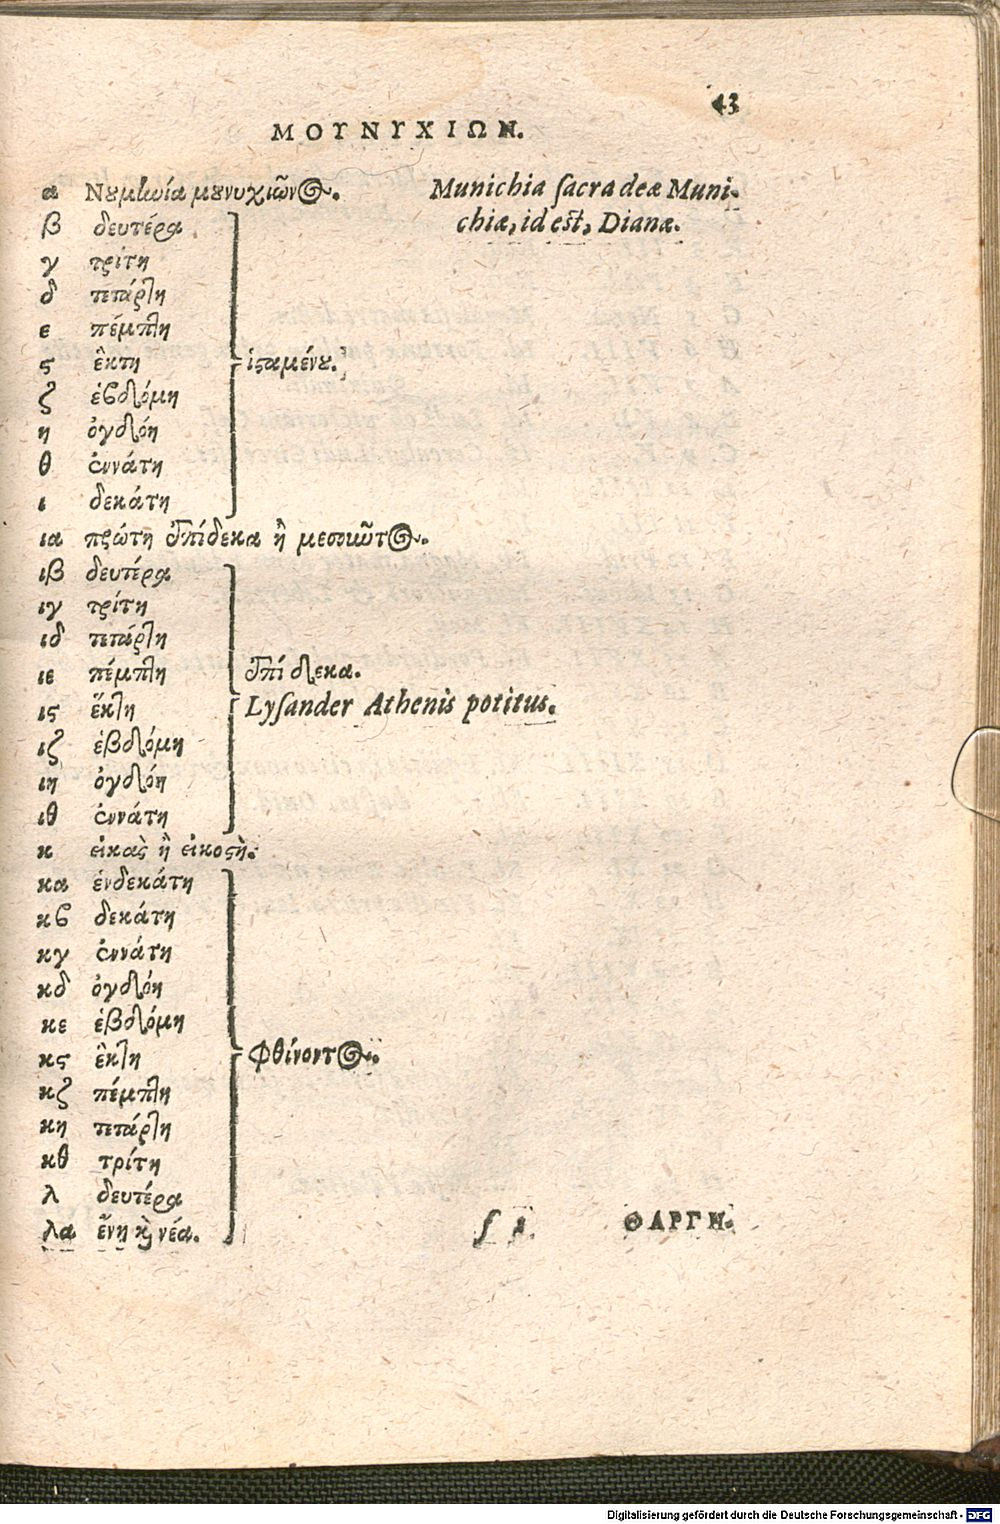 43
ΜΟΥΝΥΧΙΩΝ.
α Νουμηνία μουνυχιῶνος. Munichia ſacra deæ Muni-
chiæ, id eſt, Dianæ.
β δευτέρα
γ τρίτη
δ τετάρτη
ε πέμπτη
ς ἕκτη ἱσταμένου.
ζ ἑβδόμη
η ὀγδόη
θ ἐννάτη
ι δεκάτη
ια πρώτη ἐπίδεκα ἢ μεσοῦντος.
ιβ δευτέρα
ιγ τρίτη
ιδ τετάρτη
ιε πέμπτη ἐπίδεκα.
ις ἕκτη Lyſander Athenis potitus.
ιζ ἑβδόμη
ιη ὀγδόη
ιθ ἐννάτη
κ εἰκὰς ἢ εἰκοστὴ.
κα ἑνδεκάτη
κβ δεκάτη
κγ ἐννάτη
κδ ὀγδόη
κε ἑβδόμη
κς ἕκτη φθίνοντος.
κζ πέμπτη
κη τετάρτη
κθ τρίτη
λ δευτέρα
λα ἕνη καὶ νέα.
ΘΑΡΓΗ.
Digitalisierung gefördert durch die Deutsche Forschungsgemeinschaft - DFG